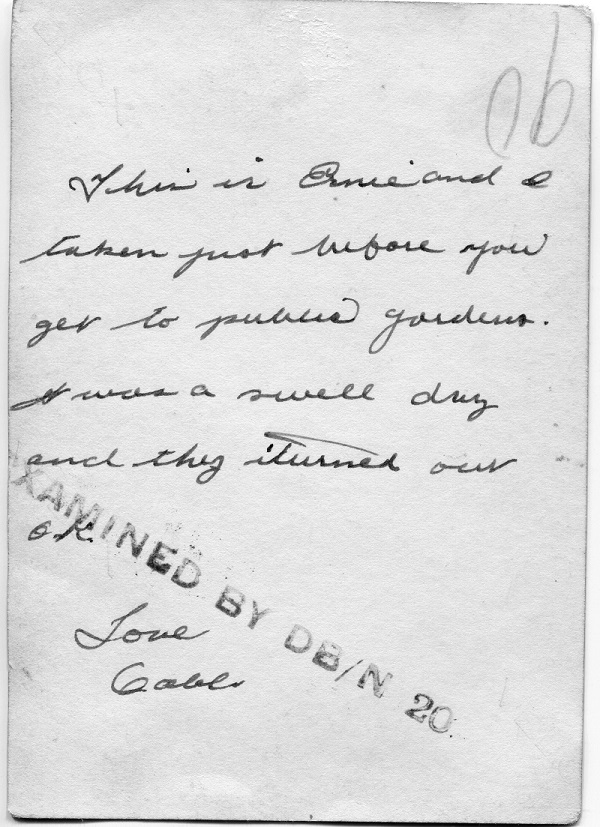 This is Ernie and I
taken just before you
get to public gardens.
It was a swell day
and they turned out
O.K.
XAMINED BY DB/N 20
Love